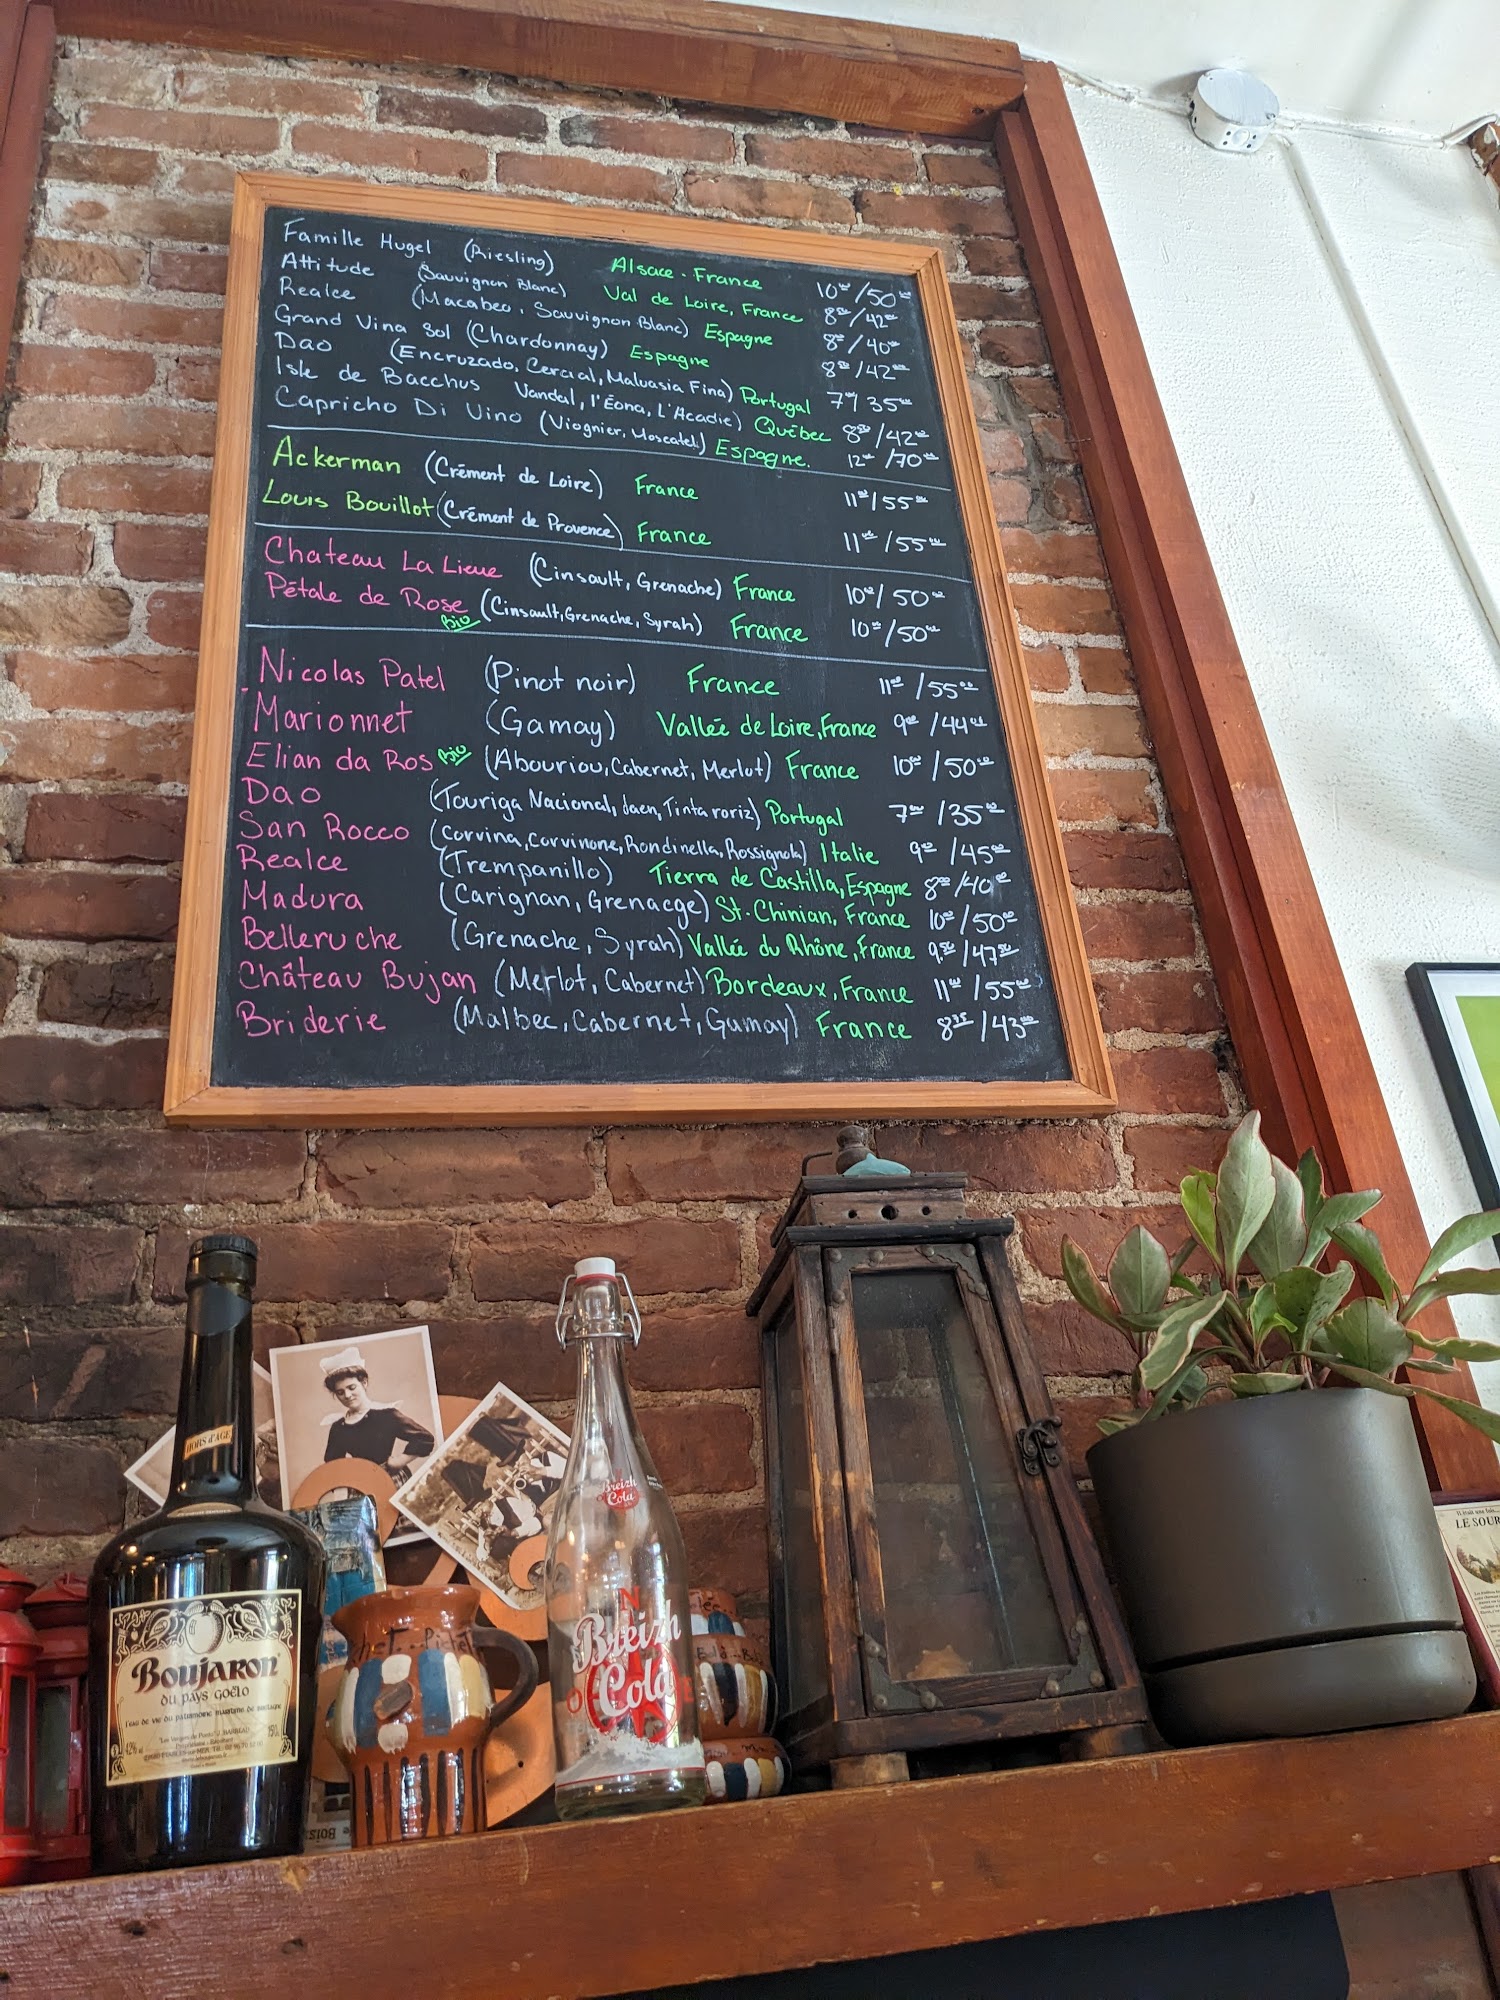 Famille Hugel (Riesling) Alsace - France 10⁰⁰/50⁰⁰
Attitude (Sauvignon Blanc) Val de Loire, France 8⁵⁰/42⁰⁰
Realce (Macabeo, Sauvignon Blanc) Espagne 8⁰⁰/40⁰⁰
Grand Vina Sol (Chardonnay) Espagne 8⁵⁰/42⁰⁰
Dao (Encruzado, Cercial, Malvasia Fina) Portugal 7⁰⁰/35⁰⁰
Isle de Bacchus Vandal, l'Éona, L'Acadie) Québec 8⁵⁰/42⁰⁰
Capricho Di Vino (Viognier, Moscatel) Espagne. 12⁰⁰/70⁰⁰
Ackerman (Crément de Loire) France 11⁰⁰/55⁰⁰
Louis Bouillot (Crément de Provence) France 11⁰⁰/55⁰⁰
Chateau La Lieue (Cinsault, Grenache) France 10⁰⁰/50⁰⁰
Pétale de Rose (Cinsault, Grenache, Syrah) France 10⁰⁰/50⁰⁰
Bio
Nicolas Patel (Pinot noir) France 11⁰⁰/55⁰⁰
Marionnet (Gamay) Vallée de Loire, France 9⁰⁰/44⁰⁰
Elian da Ros Bio (Abouriou, Cabernet, Merlot) France 10⁰⁰/50⁰⁰
Dao (Touriga Nacional, Jaen, Tinta roriz) Portugal 7⁰⁰/35⁰⁰
San Rocco (corvina, corvinone, Rondinella, Rossignola) Italie 9⁰⁰/45⁰⁰
Realce (Trempanillo) Tierra de Castilla, Espagne 8⁰⁰/40⁰⁰
Madura (Carignan, Grenacge) St. Chinian, France 10⁰⁰/50⁰⁰
Belleruche (Grenache, Syrah) Vallée du Rhône, France 9⁵⁰/47⁵⁰
Château Bujan (Merlot, Cabernet) Bordeaux, France 11⁰⁰/55⁰⁰
Briderie (Malbec, Cabernet, Gamay) France 8⁷⁵/43⁰⁰
HORS d'AGE
Boujaron
DU PAYS GOËLO
l'eau de vie du patrimoine maritime de Bretagne
42%
Breizh
Cola
Breizh
Cola
LE SOUR